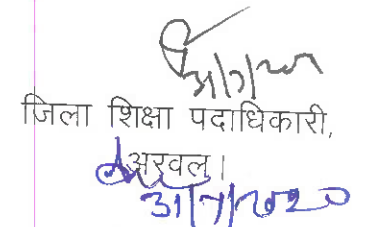 जिला शिक्षा पदाधिकारी,
अरवल।
31/7/2020